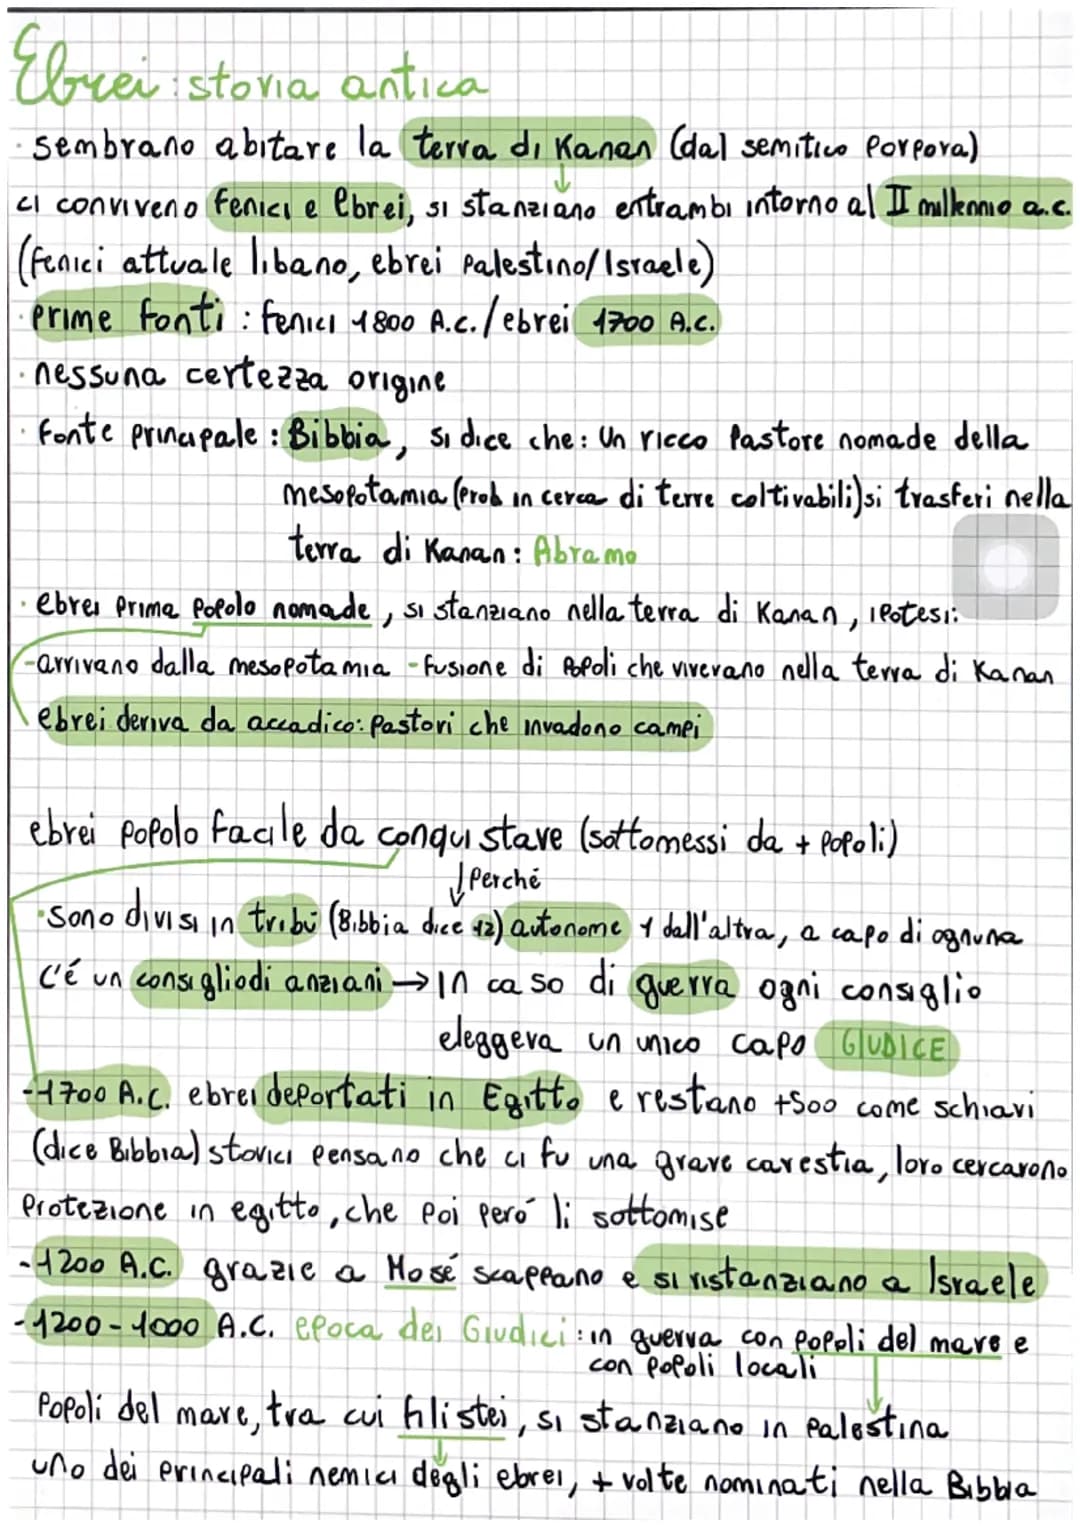 Ebrei: storia antica
· sembrano abitare la terra di Kanan (dal semitico Porpora)
ci conviveno fenici e Ebrei, si stanziano entrambi intorno al II millennio a.c.
(fenici attuale libano, ebrei Palestino/Israele)
· Prime fonti : fenici 1800 A.C./ebrei 1700 A.C.
· nessuna certezza origine
· fonte principale : Bibbia, si dice che: Un ricco Pastore nomade della
mesopotamia (Prob in cerca di terre coltivabili) si trasferi nella
terra di Kanan: Abramo
· ebrei Prima Popolo nomade, si stanziano nella terra di Kanan, iPotesi:
-arrivano dalla mesopotamia -fusione di Popoli che vivevano nella terra di Kanan
ebrei deriva da accadico: Pastori che invadono campi
ebrei Popolo facile da conquistare (sottomessi da + Popoli)
↓ Perché
· Sono divisi in tribù (Bibbia dice 12) autonome 1 dall'altra, a capo di ognuna
c'é un consigliodi anziani → In caso di guerra ogni consiglio
eleggeva un unico capo GIUDICE
-1700 A.C. ebrei deportati in Egitto e restano +500 come schiavi
(dice Bibbia) storici Pensano che ci fu una grave carestia, loro cercarono
Protezione in egitto, che Poi Peró li sottomise
-1200 A.C. grazie a Mosé scappano e si ristanziano a Israele
-1200-1000 A.C. epoca dei Giudici: in guerra con Popoli del mare e
con popoli locali
Popoli del mare, tra cui filistei, si stanziano in Palestina
uno dei Principali nemici degli ebrei, + volte nominati nella Bibbia